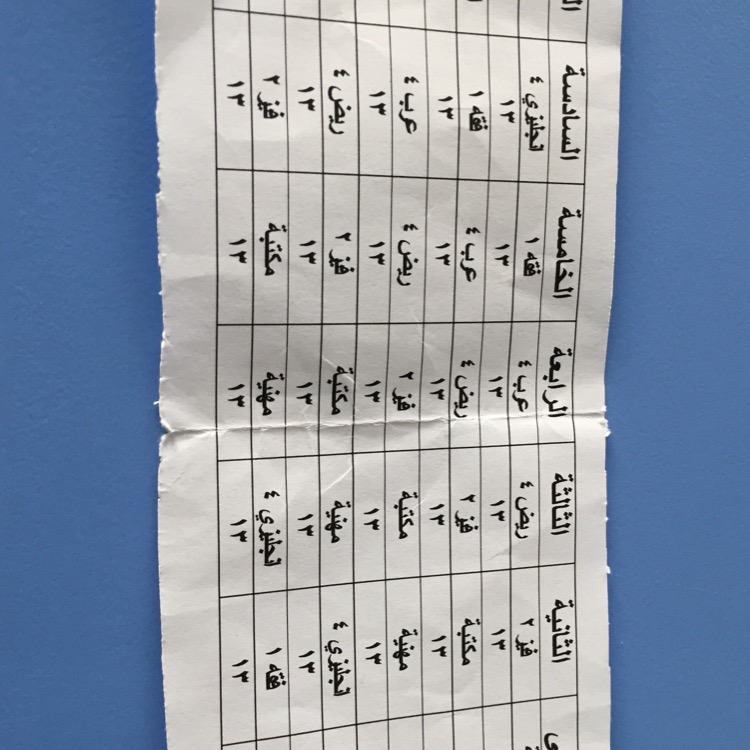 الثانية الثالثة الرابعة الخامسة السادسة
فيز ٢ ريض ٤ عرب ٤ فقه ١ نجليزي ٤
١٣ ١٣ ١٣ ١٣ ١٣
مكتبة فيز ٢ ريض ٤ عرب ٤ فقه ١
١٣ ١٣ ١٣ ١٣ ١٣
مهنية مكتبة فيز ٢ ريض ٤ عرب ٤
١٣ ١٣ ١٣ ١٣ ١٣
نجليزي ٤ مهنية مكتبة فيز ٢ ريض ٤
١٣ ١٣ ١٣ ١٣ ١٣
فقه ١ نجليزي ٤ مهنية مكتبة فيز ٢
١٣ ١٣ ١٣ ١٣ ١٣